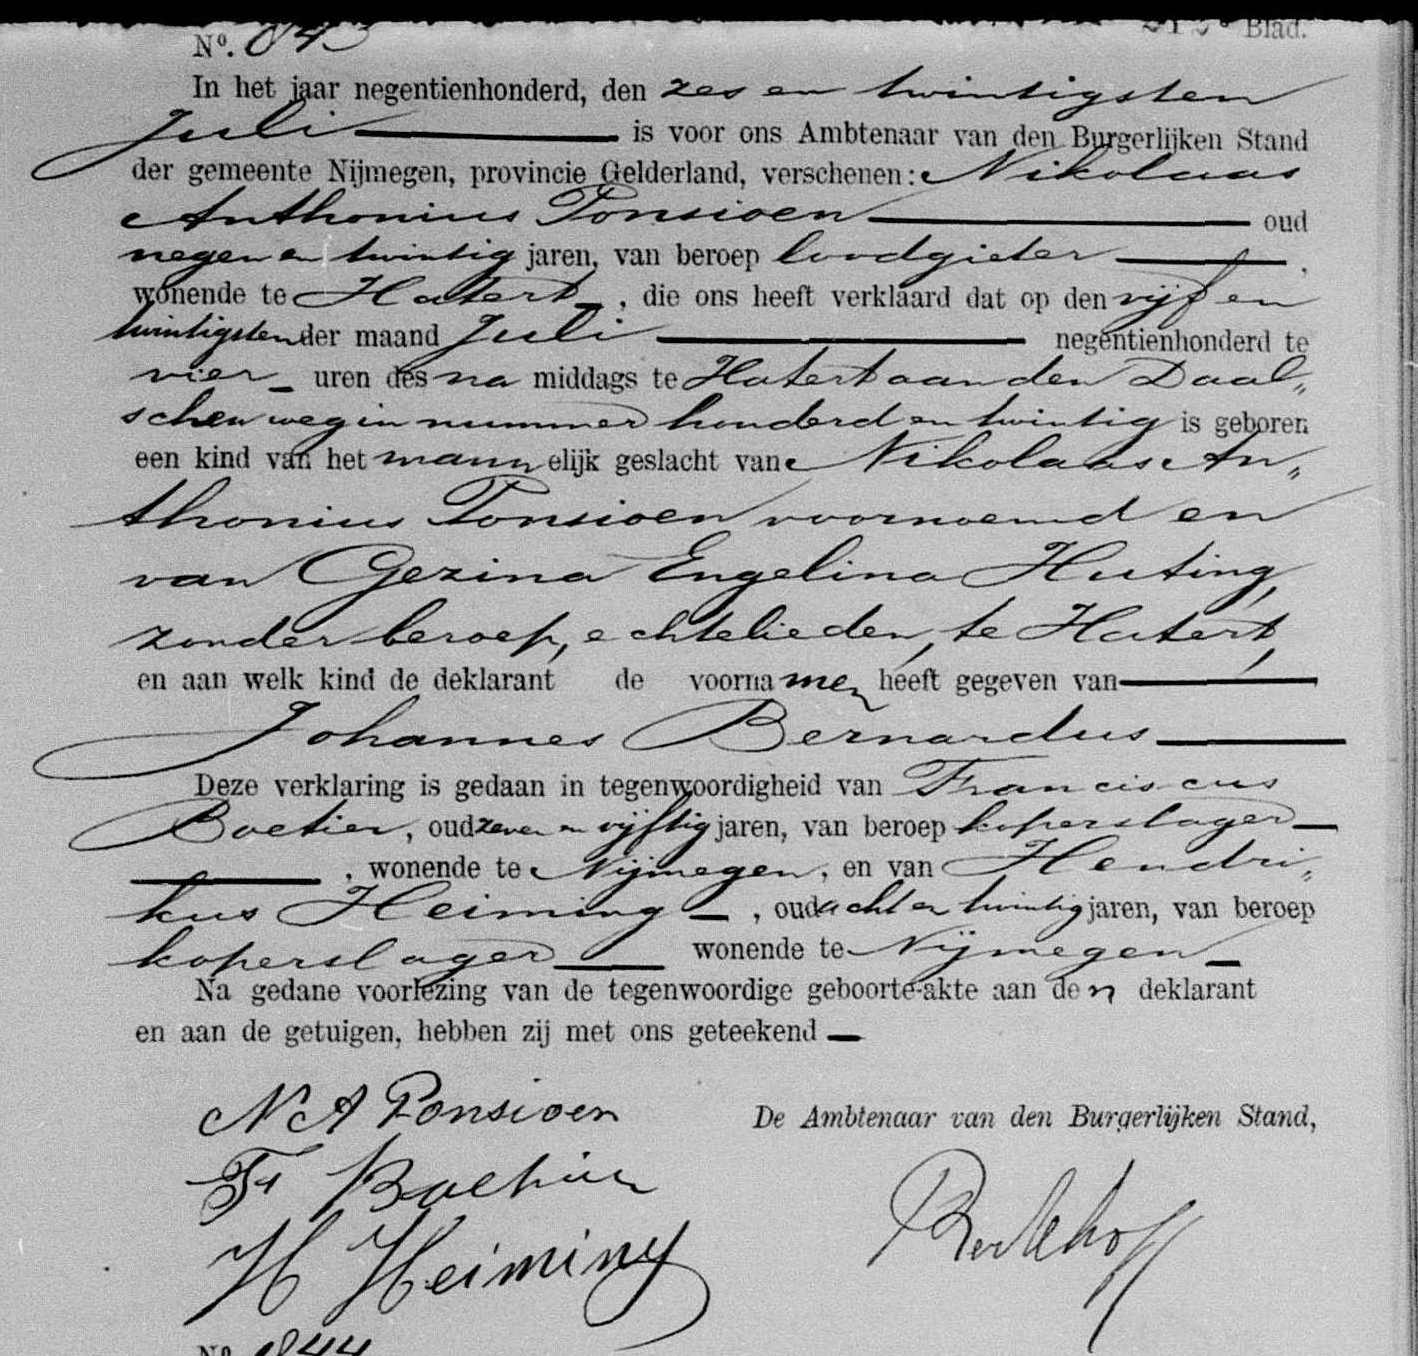 Nº. 843 Blad.
In het jaar negentienhonderd, den zes en twintigsten
Juli is voor ons Ambtenaar van den Burgerlijken Stand
der gemeente Nijmegen, provincie Gelderland, verschenen: Nikolaas
Anthonius Ponsioen oud
negen en twintig jaren, van beroep loodgieter,
wonende te Hatert, die ons heeft verklaard dat op den vijf en
twintigsten der maand Juli negentienhonderd te
vier uren des na middags te Hatert aan den Daal„
schen weg in nummer honderd en twintig is geboren
een kind van het mannelijk geslacht van Nikolaas An„
thonius Ponsioen voornoemd en
van Gezina Engelina Huting,
zonder beroep, echtelieden, te Hatert,
en aan welk kind de deklarant de voornamen heeft gegeven van
Johannes Bernardus
Deze verklaring is gedaan in tegenwoordigheid van Franciscus
Boetier, oud zeven en vijftig jaren, van beroep koperslager
, wonende te Nijmegen, en van Hendri„
kus Heiming, oud acht en twintig jaren, van beroep
koperslager wonende te Nijmegen
Na gedane voorlezing van de tegenwoordige geboorte-akte aan den deklarant
en aan de getuigen, hebben zij met ons geteekend
N A Ponsioen
De Ambtenaar van den Burgerlijken Stand,
Fs Boetier
H Heiming
Nº 844